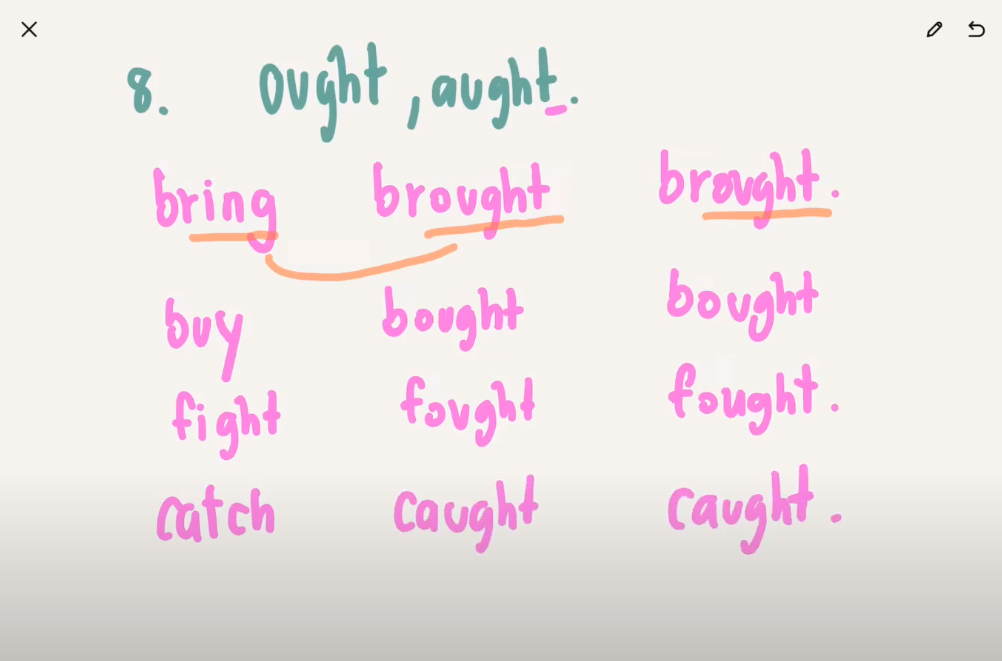 8. Ought, aught.
bring brought brought.
buy bought bought
fight fought fought.
catch caught caught.